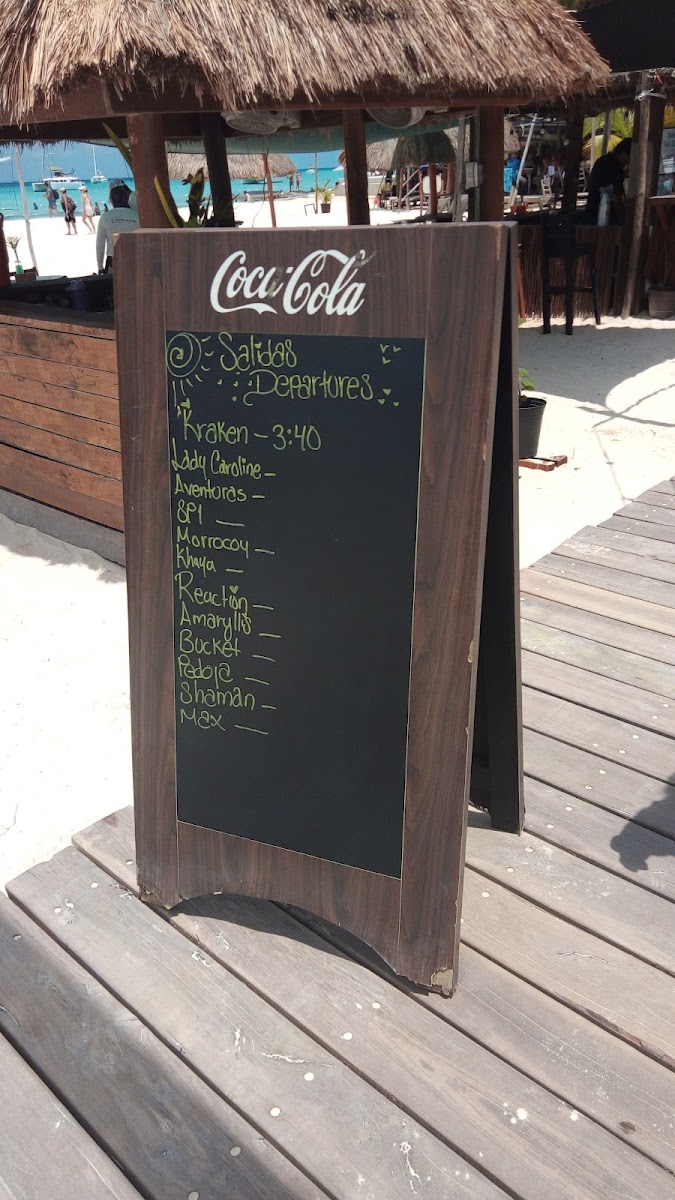 Coca-Cola
Salidas
Departures
Kraken - 3:40
Lady Caroline -
Aventuras -
SP1 —
Morrocoy —
Khaya —
Reaction —
Amaryllis —
Bucket —
Pedoja —
Shaman —
Max —